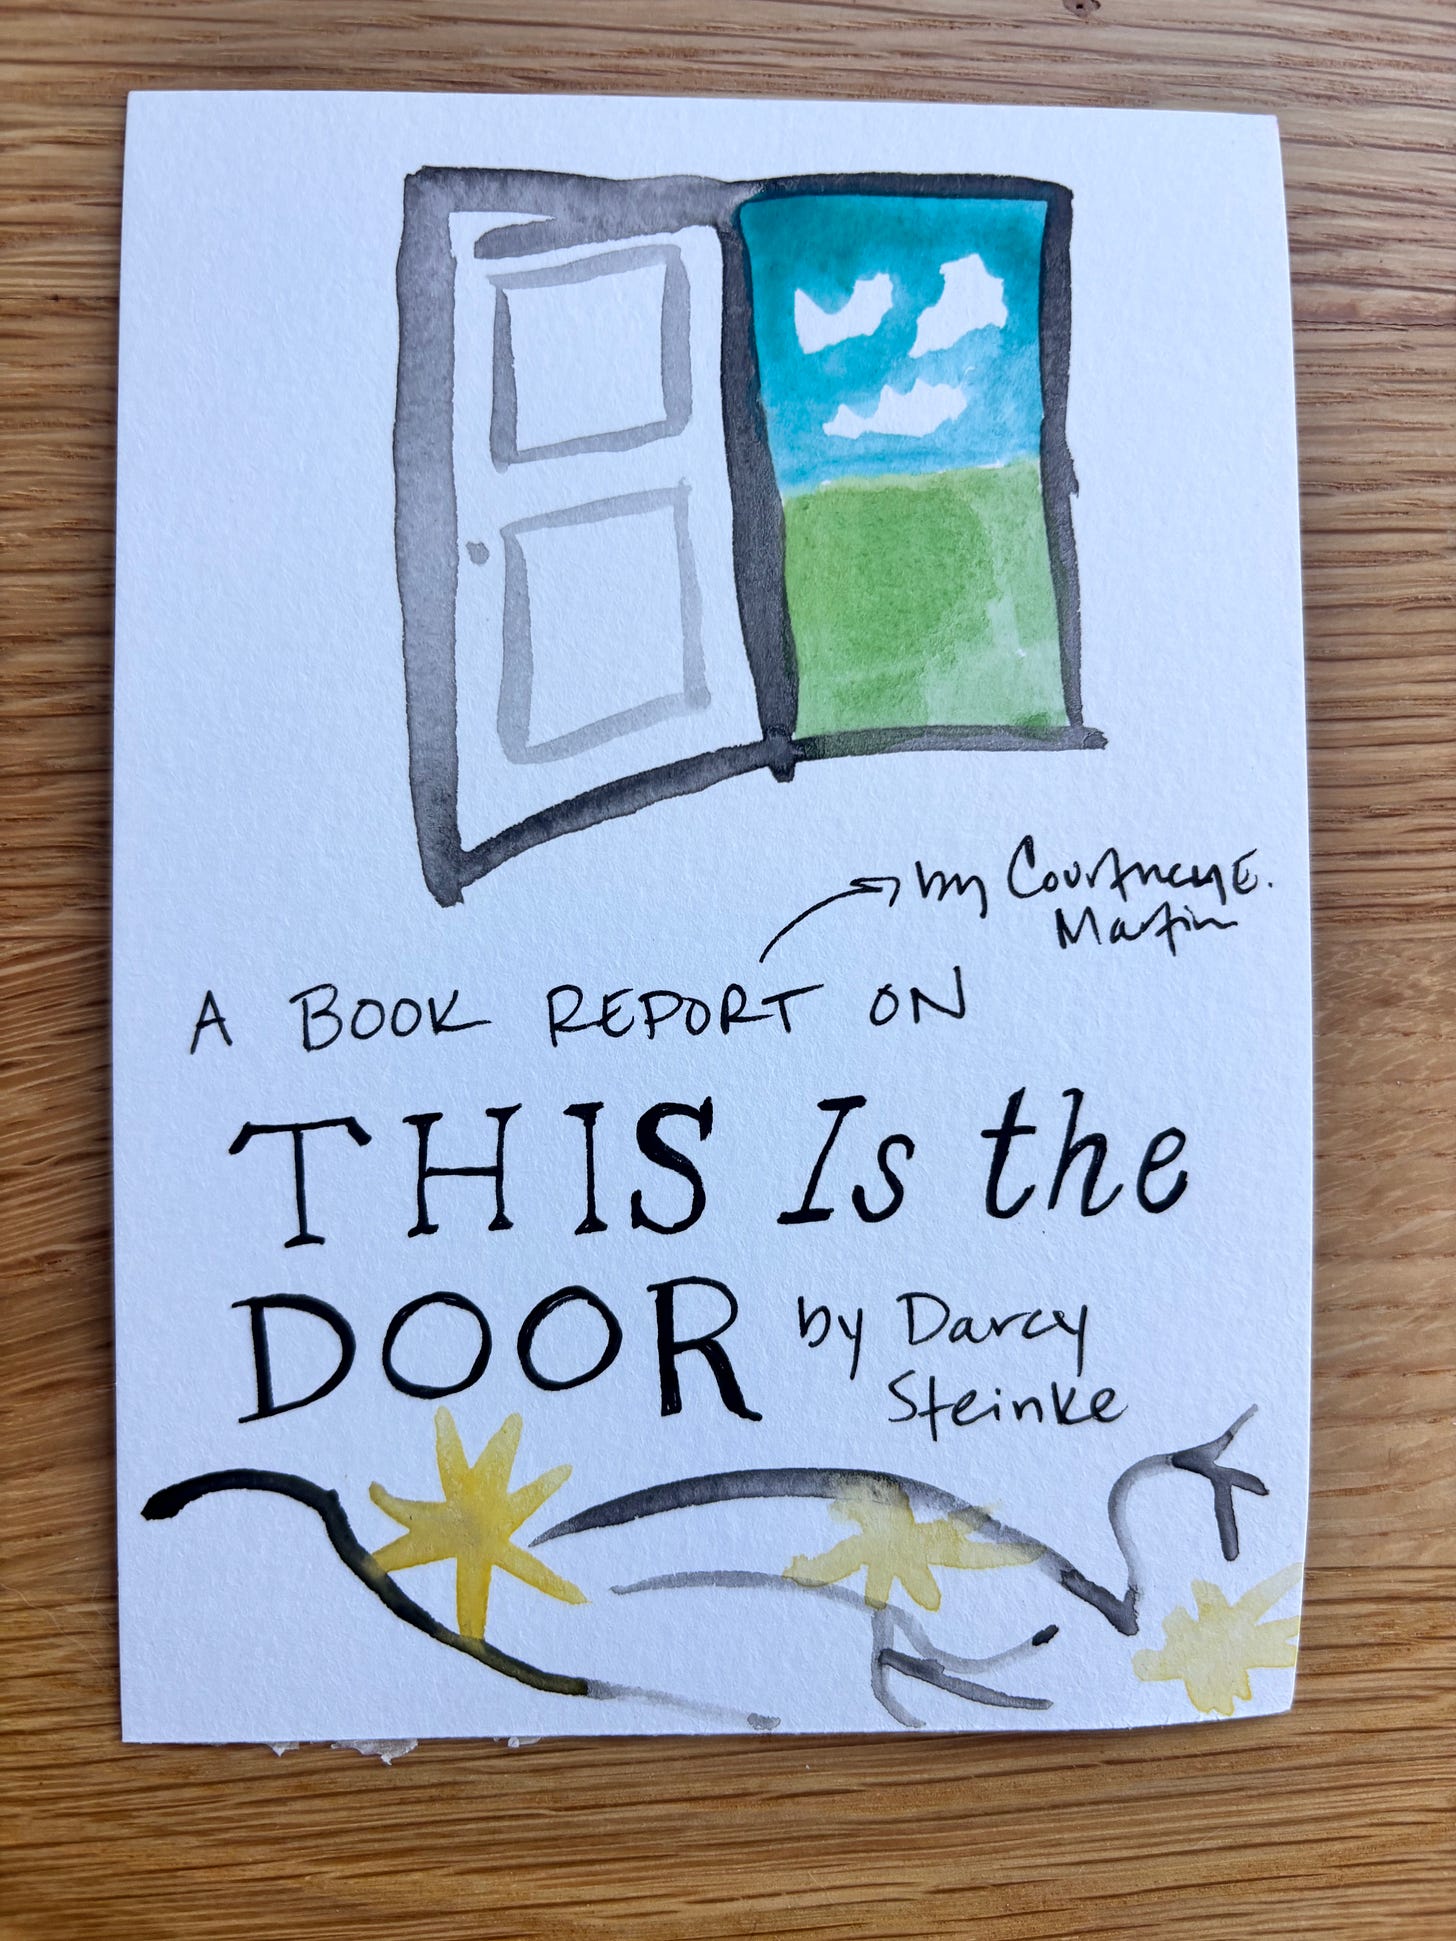 by Courtney E.
Martin
A BOOK REPORT ON
THIS Is the
DOOR by Darcy
Steinke